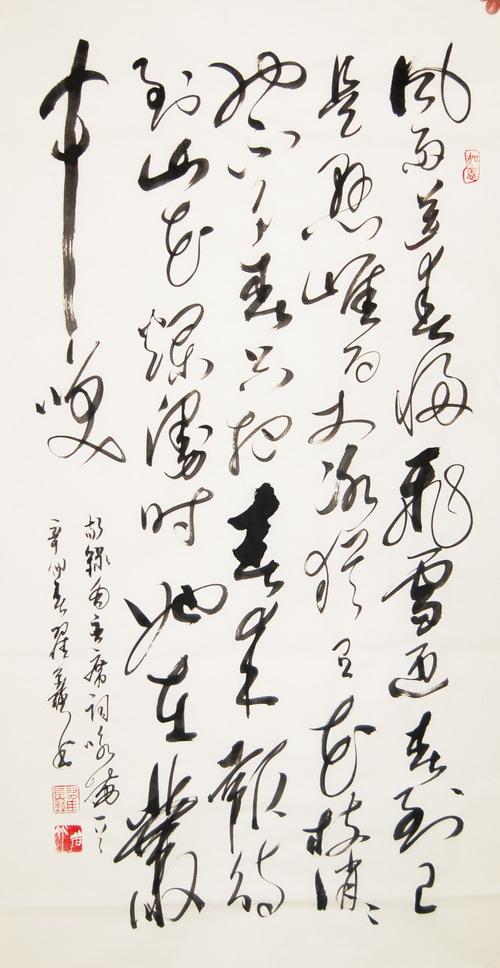 風雨送春歸飛雪迎春到已
是懸崖百丈冰猶有花枝俏〻
也不爭春只把春來報待
到山花爛漫時她在叢
中笑
敬録毛主席詞咏梅一首
辛卯春翟羲書
如意